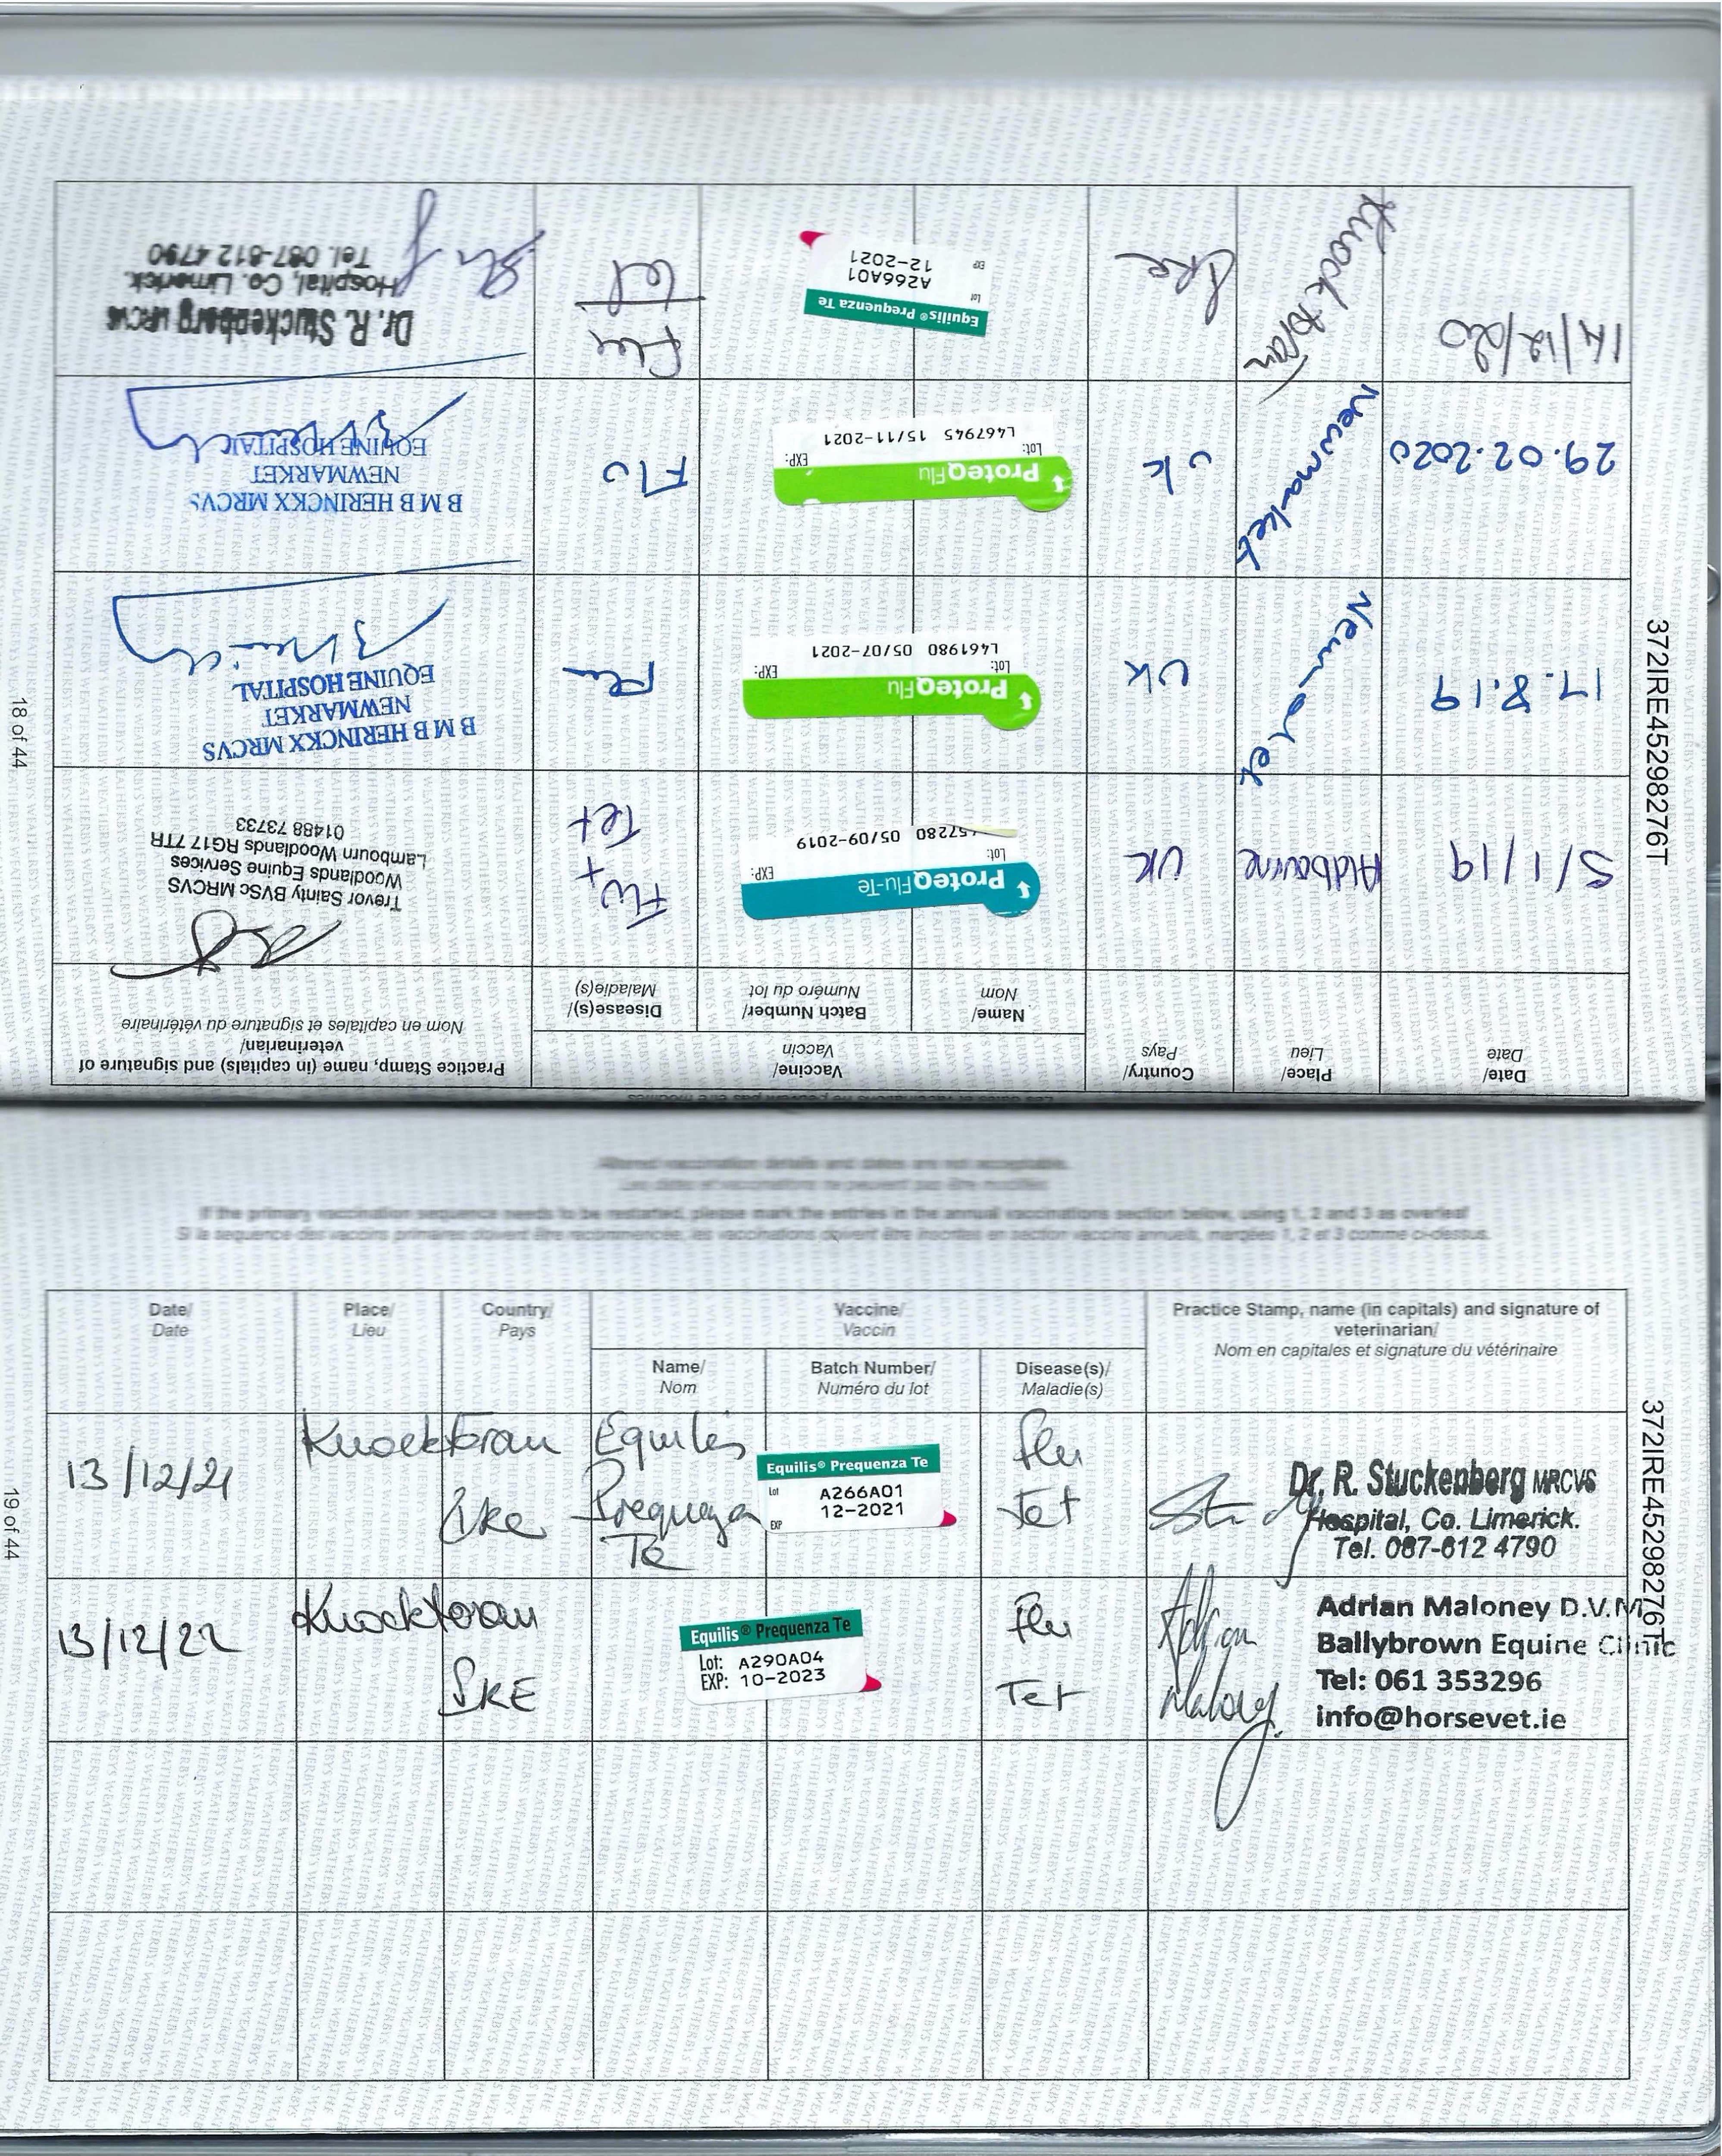 18 of 44
372IRE45298276T
Date/
Date
Place/
Lieu
Country/
Pays
Vaccine/
Vaccin
Name/
Nom
Batch Number/
Numéro du lot
Disease(s)/
Maladie(s)
Practice Stamp, name (in capitals) and signature of
veterinarian/
Nom en capitales et signature du vétérinaire
5/1/19
Aldbourne
UK
ProteqFlu-Te
Lot: EXP:
57280 05/09-2019
Flu +
Tet
Trevor Sainty BVSc MRCVS
Woodlands Equine Services
Lambourn Woodlands RG17 7TR
01488 73733
17.8.19
UK
ProteqFlu
Lot: EXP:
L461980 05/07-2021
Flu
B M B HERINCKX MRCVS
NEWMARKET
EQUINE HOSPITAL
29.02.2020
Newmarket
UK
ProteqFlu
Lot: EXP:
L467945 15/11-2021
Flu
B M B HERINCKX MRCVS
NEWMARKET
EQUINE HOSPITAL
14/12/20
Knocktoran
Ire
Equilis® Prequenza Te
Lot A266A01
EXP 12-2021
Flu
Tet
Dr. R. Stuckenberg MRCVS
Hospital, Co. Limerick.
Tel. 087-612 4790
Altered vaccination details and dates are not acceptable.
Les dates et vaccinations ne peuvent pas être modifiés
If the primary vaccination sequence needs to be restarted, please mark the entries in the annual vaccinations section below, using 1, 2 and 3 as overleaf
Date/
Date
Place/
Lieu
Country/
Pays
Vaccine/
Vaccin
Name/
Nom
Batch Number/
Numéro du lot
Disease(s)/
Maladie(s)
Practice Stamp, name (in capitals) and signature of
veterinarian/
Nom en capitales et signature du vétérinaire
13/12/21
Knocktoran
Ire
Equilis
Prequenza
Te
Equilis® Prequenza Te
Lot A266A01
EXP 12-2021
Flu
Tet
Dr. R. Stuckenberg MRCVS
Hospital, Co. Limerick.
Tel. 087-612 4790
13/12/22
Knocktoran
IRE
Equilis® Prequenza Te
Lot: A290A04
EXP: 10-2023
Flu
Tet
Adrian
Maloney
Adrian Maloney D.V.M
Ballybrown Equine Clinic
Tel: 061 353296
info@horsevet.ie
372IRE45298276T
19 of 44